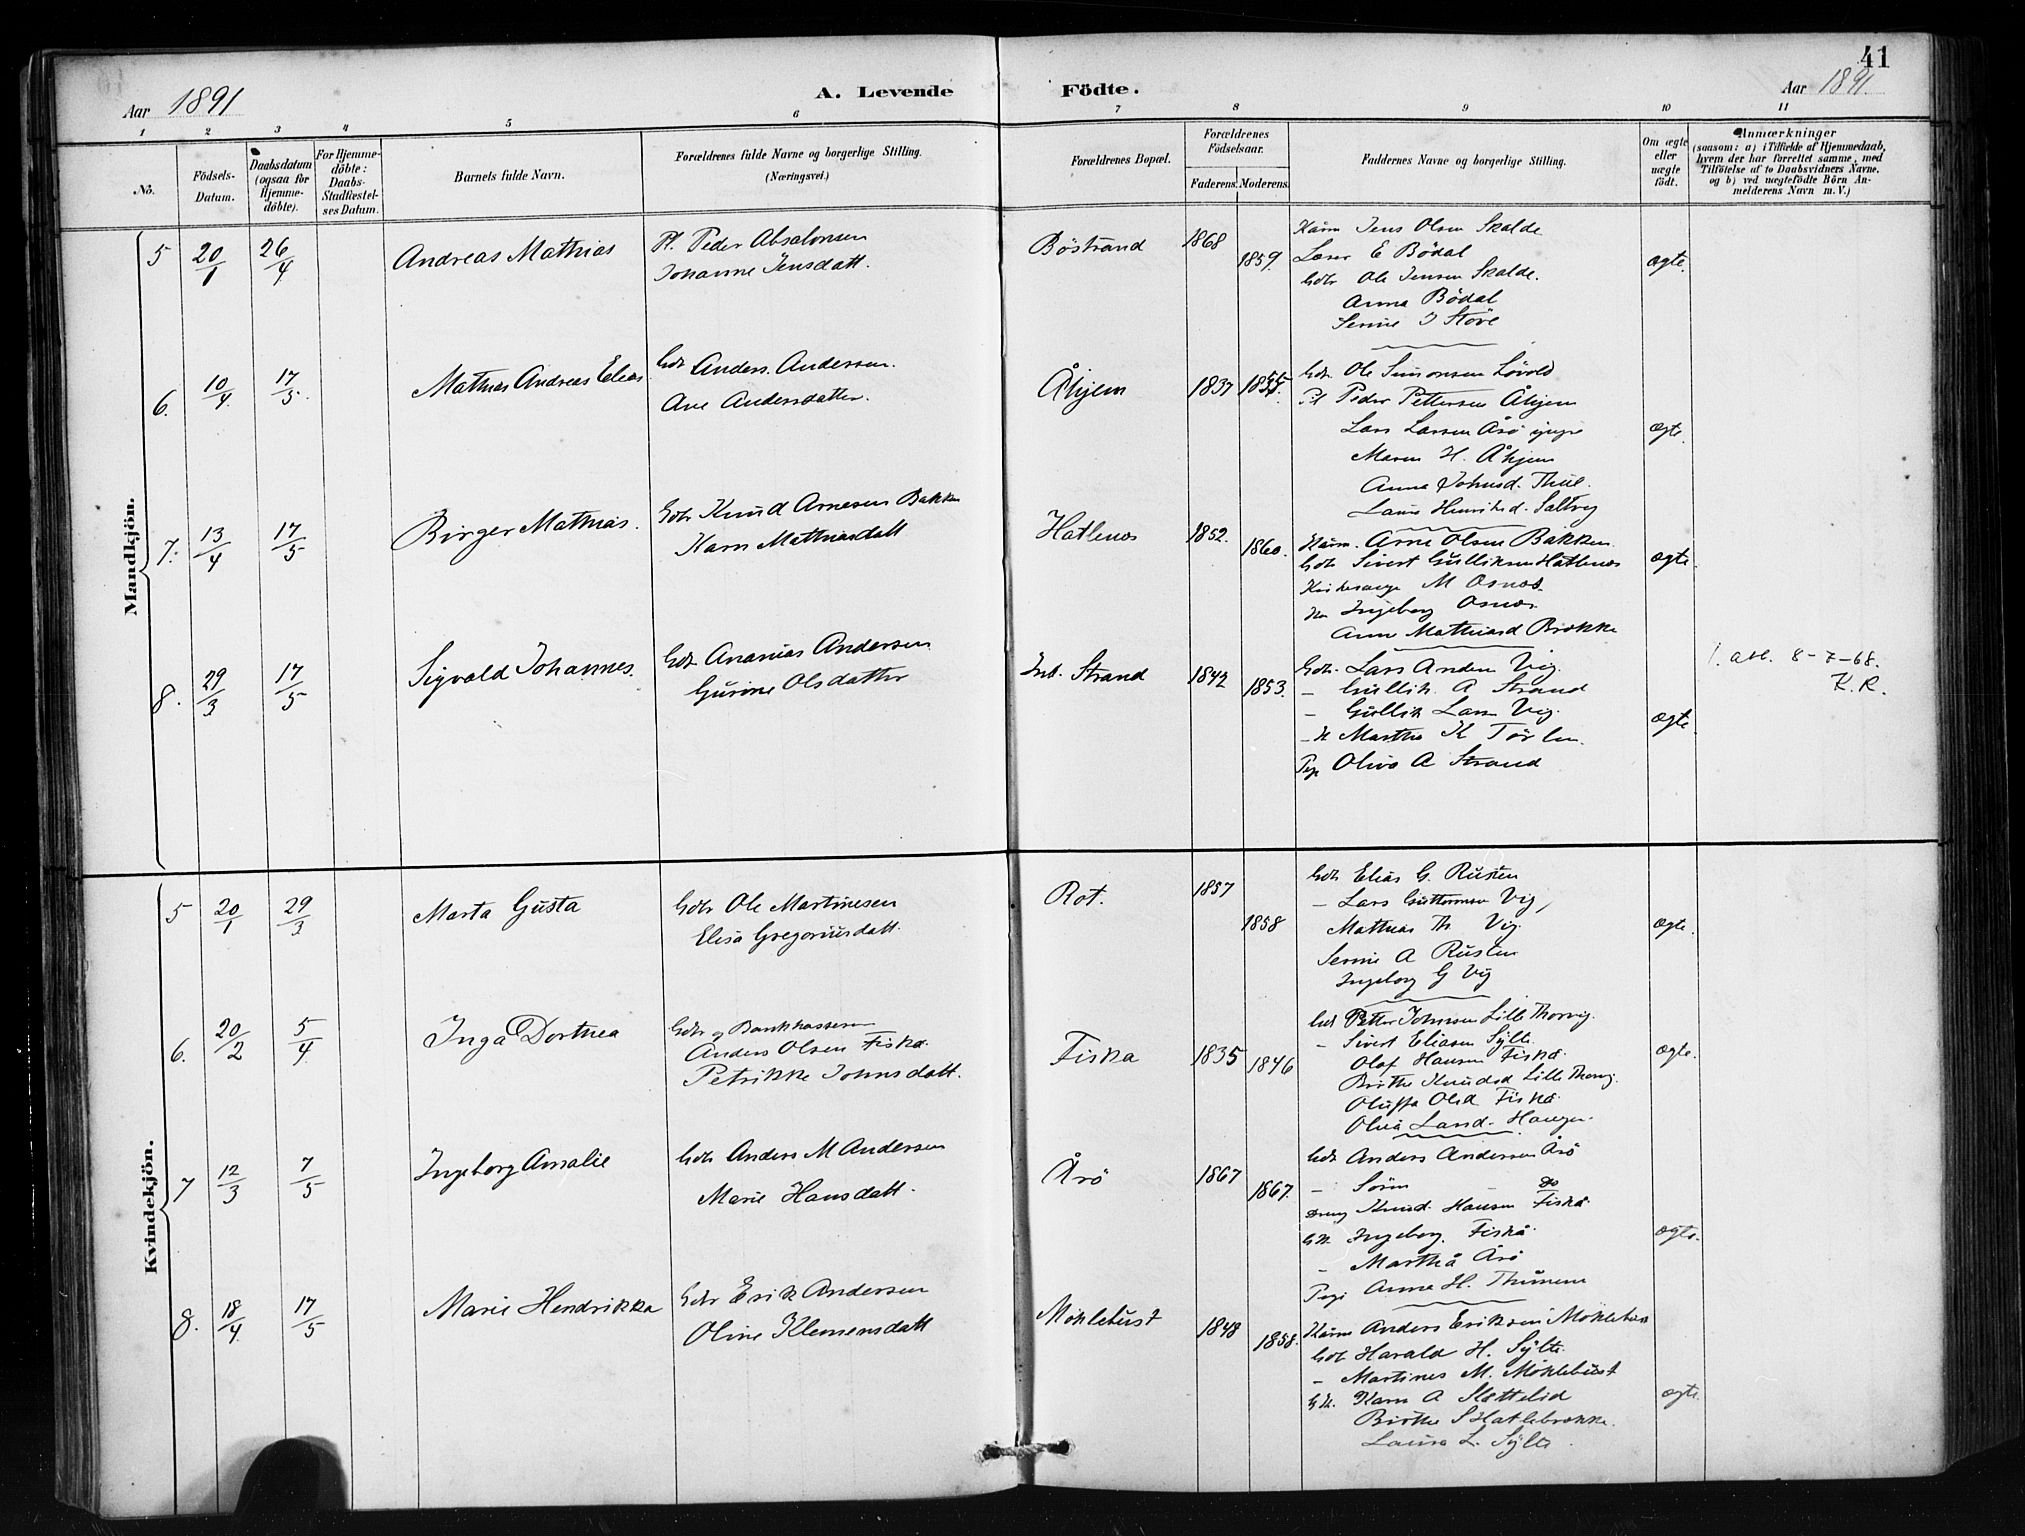 41
Aar 1891
A. Levende Födte.
Aar 1891.
1 2 3 4 5 6 7 8 9 10 11
No.
Födsels-Datum.
Daabsdatum (ogsaa for Hjemme-döbte).
For Hjemme-döbte: Daabs-Stadfæstel-ses Datum.
Barnets fulde Navn.
Forældrenes fulde Navne og borgerlige Stilling. (Næringsvei.)
Forældrenes Bopæl.
Forældrenes Födselsaar.
Faderens. Moderens.
Faddernes Navne og borgerlige Stilling.
Om ægte eller uægte födt.
Anmærkninger
(saasom: a) i Tilfælde af Hjemmedaab, hvem der har forrettet samme, med Tilföielse af to Daabsvidners Navne, og b) ved uægtefödte Börn Anmelderens Navn m. V.)
Mandkjön.
5 20/1 26/4 Andreas Mathias
Pl. Peder Absalonsen
Johanne Jensdatt.
Böstrand 1868 1859.
Kårm Jens Olsen Skalde
Laser E Bödal
Gdbr Ole Jensen Skalde.
Anna Bödal
Serine J Störe
ægte.
6. 10/4 17/5. Mathias Andreas Elias
Gdbr Anders Andersen.
Ane Andersdatter.
Åhjem 1837 1855.
Gdb. Ole Simonsen Lövold
Pl Peder Pettersen Åhjem
Lars Larsen Årö yngre
Maren H. Åhjem
Anna Johnsd. Thue
Laura Henriksd. Saltvig
ægte.
7. 13/4 17/5 Birger Mathias.
Gdbr Knud Arnesen Bakken
Karn Mathiasdatt
Hatlenæs 1852. 1860.
Kårm. Arne Olsen Bakken.
Gdb Sivert Gulliksen Hatlenæs
Kirkesanger M Osnæs.
Ingeborg Osnæs.
Anne Mathiasd Brække
ægte.
8. 29/3 17/5 Sigvald Johannes.
Gdb. Ananias Andersen
Gurine Olsdatter
Ind. Strand 1842 1853.
Gdb. Lars Anders Vig.
– Gullik A Strand
– Gullik Lars Vig.
– K Martha K
Pige Oliva A Strand
ægte.
1. att. 8-7-68.
K. R.
Kvindekjön.
5 20/1 29/3 Marta Gusta
Gdbr Ole Martinesen
Elisa Gregoriusdatt.
Rot. 1857 1858
Gdb Elias G. Rusten
– Lars Guttormsen Vig,
Mathias Th Vig.
Serine A Rusten
Ingeborg G Vig
ægte.
6. 20/2 5/4. Inga Dortnea
Gdbr og Bankkasserer
Anders Olsen Fiskå.
Petrikke Johnsdatt.
Fiska 1835 1846
Gdb Petter Johnsen Lille Thorvig.
– Sivert Eliasen Sylte
Olaf Hansen Fiskå.
Birthe Knudsd Lille Thorvig.
Oluffa Olsd Fiskå.
Olia Larsd. Haugen.
ægte.
7 12/3 7/5 Ingeborg Amalie
Gdbr Anders M Andersen
Marie Hansdatt.
Årö 1867 1867.
Gdb. Anders Andersen Årö
– Sören Do
Dreng Knud Hansen Fiskå
Gk Ingeborg. Fiskå.
– Martha Årö
Pige Anna H. Thunem
ægte.
8. 18/4 17/5 Marie Hendrikka
Gdbr Erik Andersen
Oline Klemensdatt
Möklebust 1848 1858.
Kårm Anders Eriksen Möklebust
Gdb Harald H. Sylte.
– Martines M. Möklebust
Gk. Karn A Slettelid
Birthe S Hatlebrække.
Laura L. Sylte
ægte.